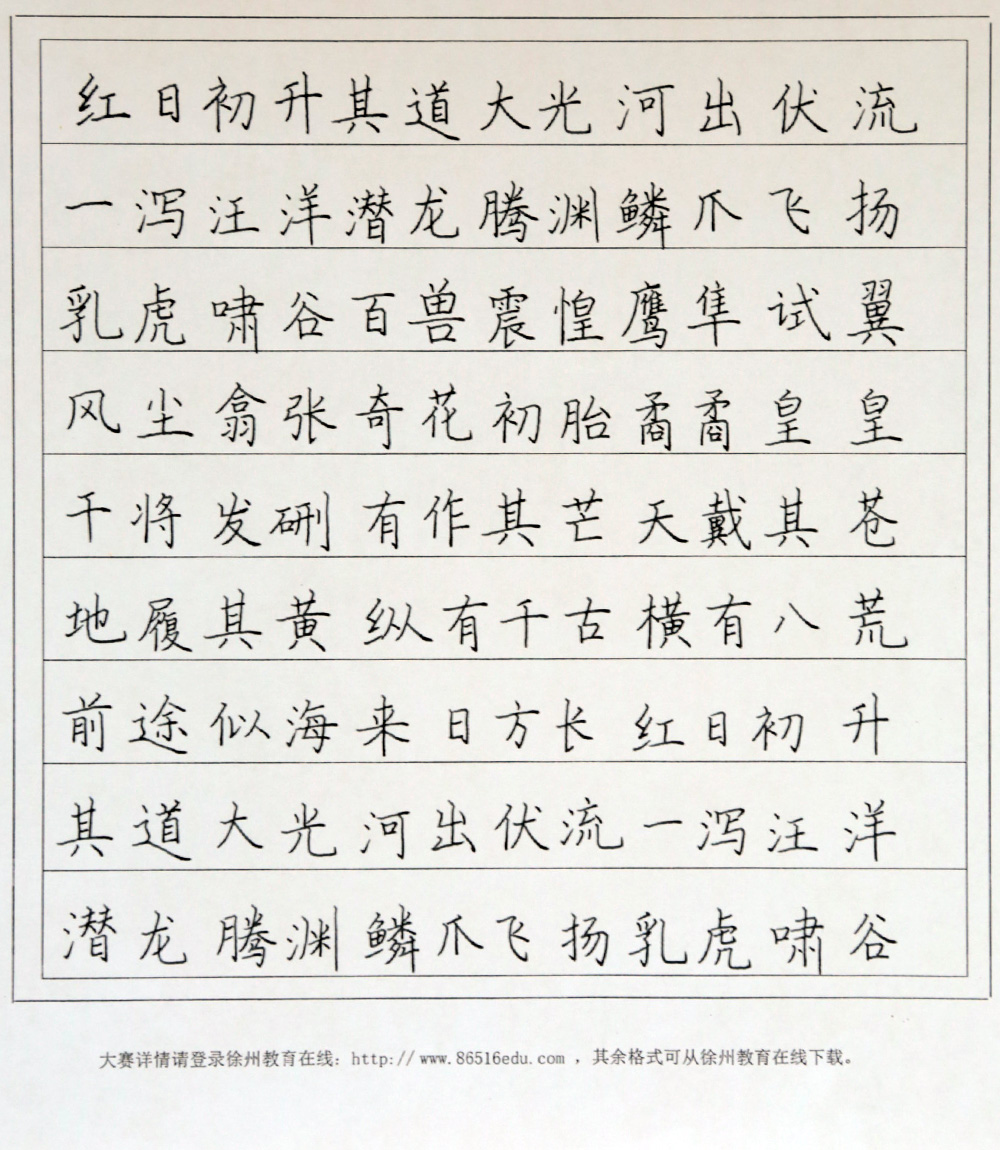 红日初升其道大光河出伏流
一泻汪洋潜龙腾渊鳞爪飞扬
乳虎啸谷百兽震惶鹰隼试翼
风尘翕张奇花初胎矞矞皇皇
干将发硎有作其芒天戴其苍
地履其黄纵有千古横有八荒
前途似海来日方长红日初升
其道大光河出伏流一泻汪洋
潜龙腾渊鳞爪飞扬乳虎啸谷
大赛详情请登录徐州教育在线：http://www.86516edu.com，其余格式可从徐州教育在线下载。